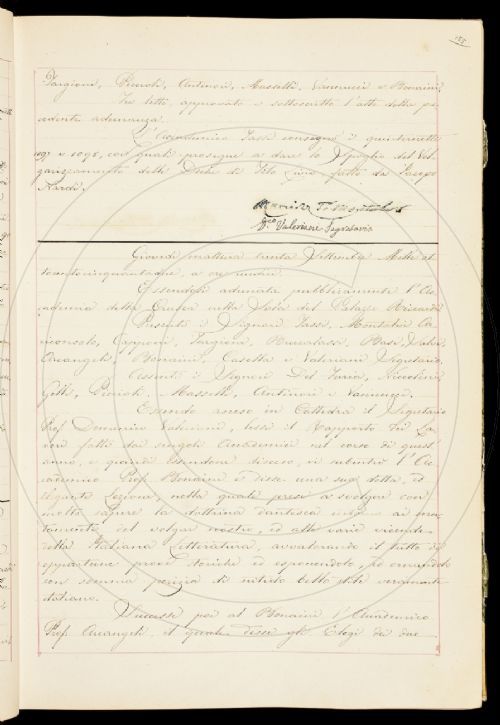 155
Targioni, Picciòli, Antinori, Masselli, Vannucci e Bonaini.
Fu letto, approvato e sottoscritto l'atto della pre-
cedente adunanza.
L'Accademico Tassi consegnò i quinternetti
197 e 198, coi quali prosegue a dare lo Spoglio del Vol-
garizzamento delle Deche di Tito Livio fatto da Jacopo
Nardi.
Segr.o Valeriani Segretario
Giovedì mattina trenta Settembre Mille ot-
tocentocinquantaquattro, a ore undici.
Essendosi adunata pubblicamente l'Ac-
cademia della Crusca nella Sala del Palazzo Riccardi
Presenti i Signori Tassi, Montalvi Ar-
ciconsolo, Capponi, Targioni, Brucalassi, Basi,
Arcangeli, Bonaini, Casella e Valeriani Segretario,
Assenti i Signori Del Furia, Niccolini,
Gelli, Picciòli, Masselli, Antinori e Vannucci.
Essendo asceso in Cattedra il Segretario
Prof. Domenico Valeriani, lesse il Rapporto dei La-
vori fatti dai singoli Accademici nel corso di quest'
anno, e quindi essendone disceso, vi subentrò l'Ac-
cademico Prof. Bonaini e disse una sua dotta, ed
elegante Lezione, nella quale prese a svolger con
molto sapere la dottrina dantesca intorno ai mu-
tamenti del volgar nostro, ed alle varie vicende
della Italiana Letteratura, avvalorando il tutto di
opportune prove storiche ed esponendolo, ed ornandolo
con somma perizia di nitido bello stile veramente
italiano.
Successe poi al Bonaini l'Accademico
Prof. Arcangeli, il quale disse gli Elogi dei due